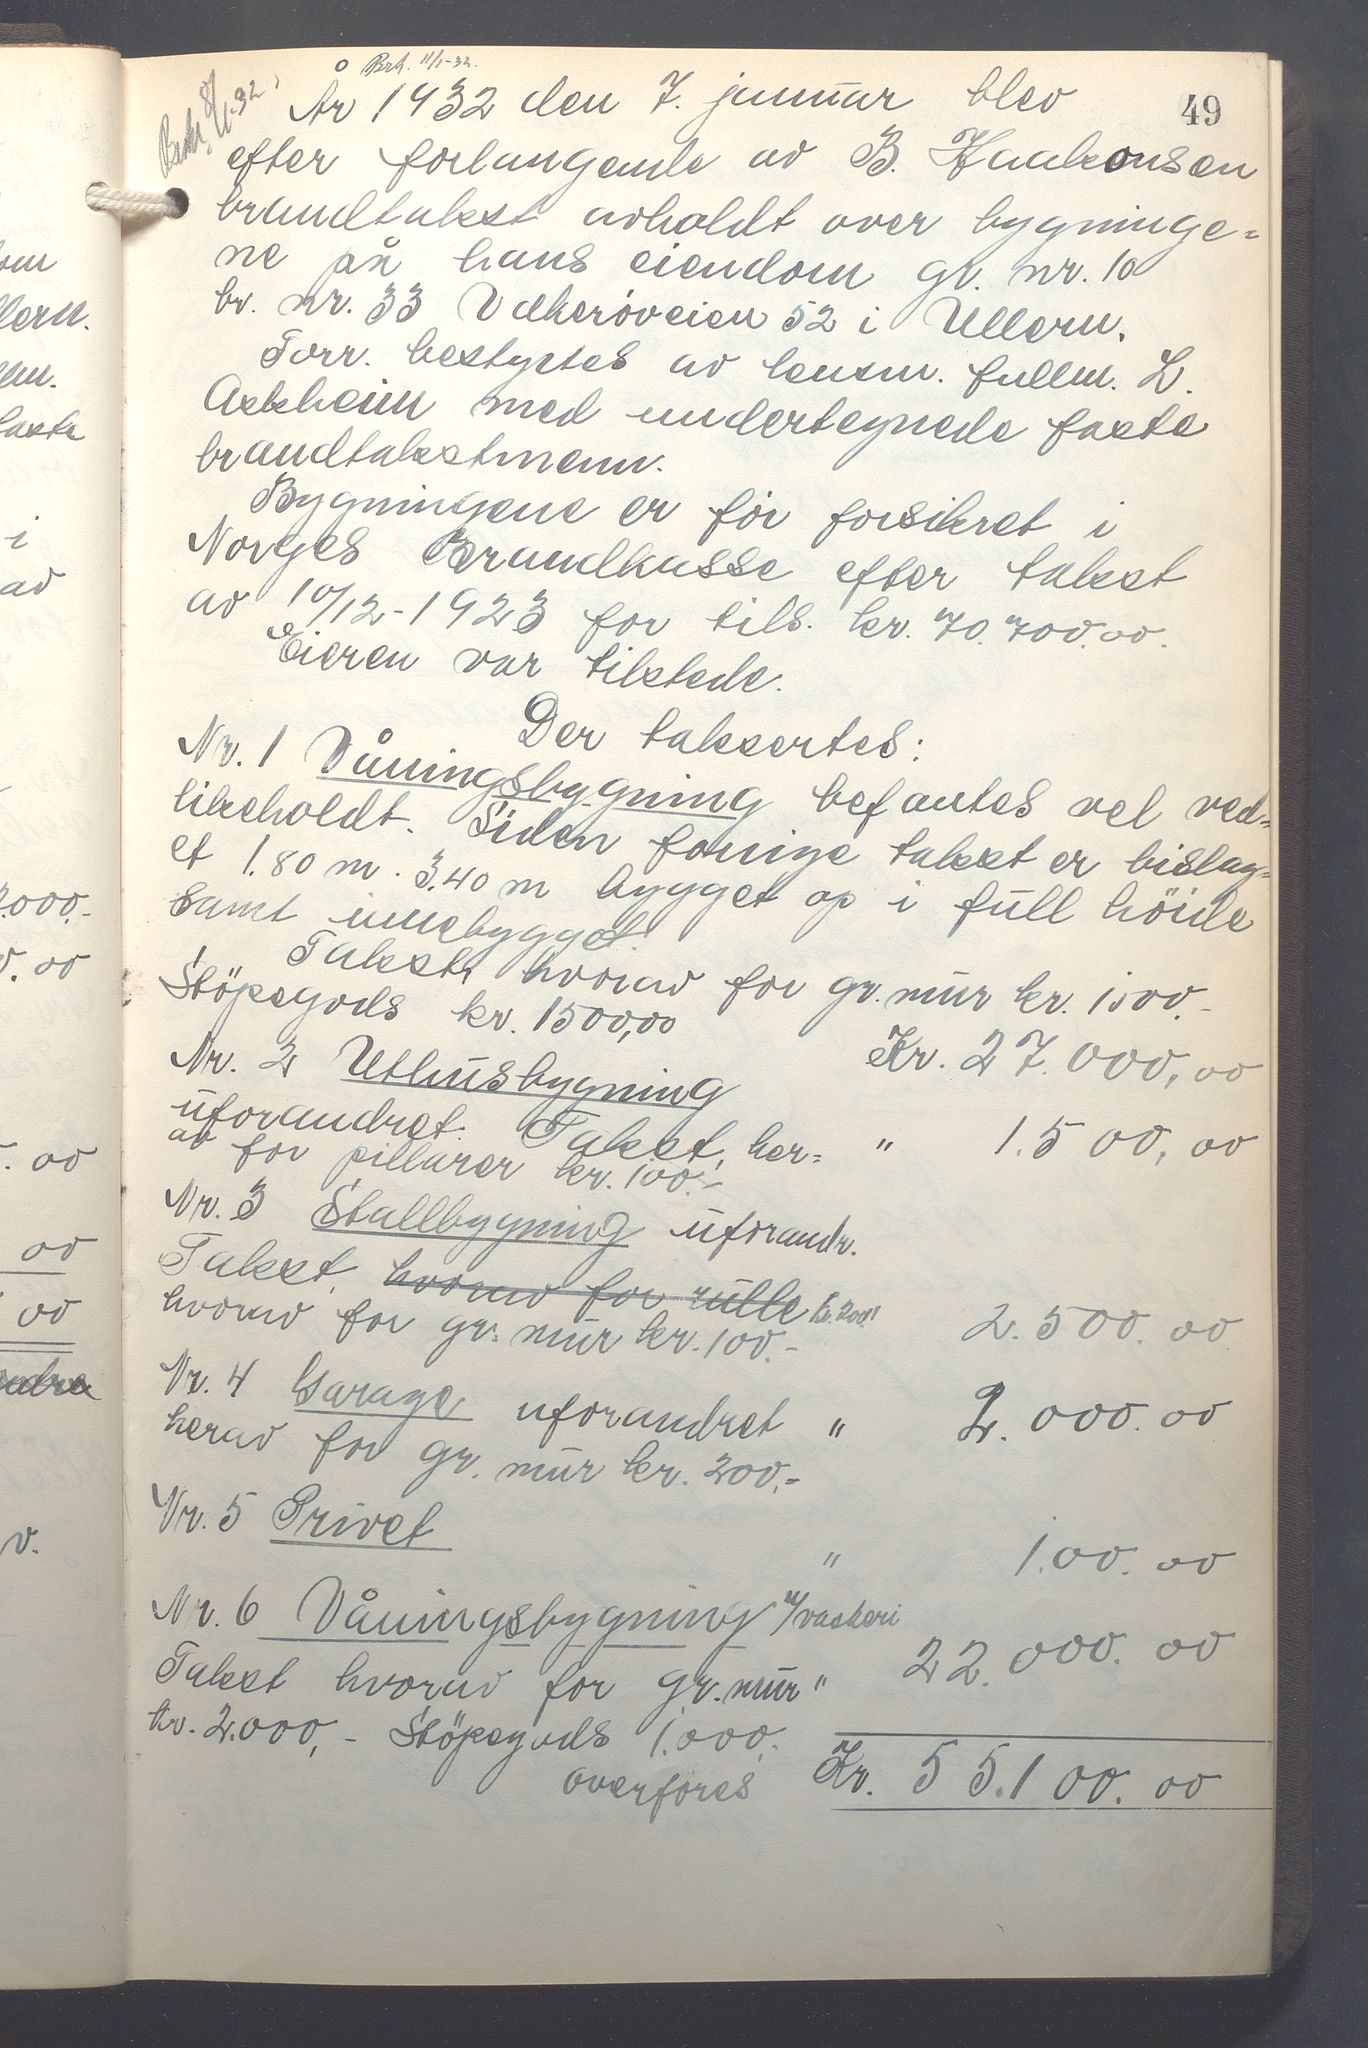 Brk. 11/1-32.
Beskr. 8/1-32.
49
År 1932 den 7. januar blev
efter forlangende av B. Haakonsen
brandtakst avholdt over bygninge-
ne på hans eiendom gr. nr. 10
br. nr. 33 Vækerøveien 52 i Ullern.
Forr. bestyrtes av lensm. fullm. L.
Askheim med undertegnede faste
brandtakstmenn.
Bygningene er før forsikret i
Norges Brandkasse efter takst
av 10/12-1923 for tils. kr. 70.700.00.
Eieren var tilstede.
Der taksertes:
Nr. 1 Våningsbygning befantes vel ved-
likeholdt. Siden forrige takst er bislag-
et 1.80 m. 3.40 m bygget op i full höide
samt innebygget.
Takst, hvorav for gr. mur kr. 1000.-
Stöpegods kr. 1500,00
Kr. 27.000,00
Nr. 2 Uthusbygning
uforandret. Takst, her- " 1.500,00
av for pillarer kr. 100.-
Nr. 3 Stallbygning uforandr.
Takst, hvorav for rulle kr. 200."
hvorav for gr. mur kr. 100.- 2.500.00
Nr. 4 Garage uforandret " 2.000.00
herav for gr. mur kr. 200,-
Nr. 5 Privet
" 1.00.00
Nr. 6 Våningsbygning m/vaskeri
Takst hvorav for gr. mur " 22.000.00
kr. 2.000,- Stöpegods 1.000.-
overføres Kr. 55.100.00